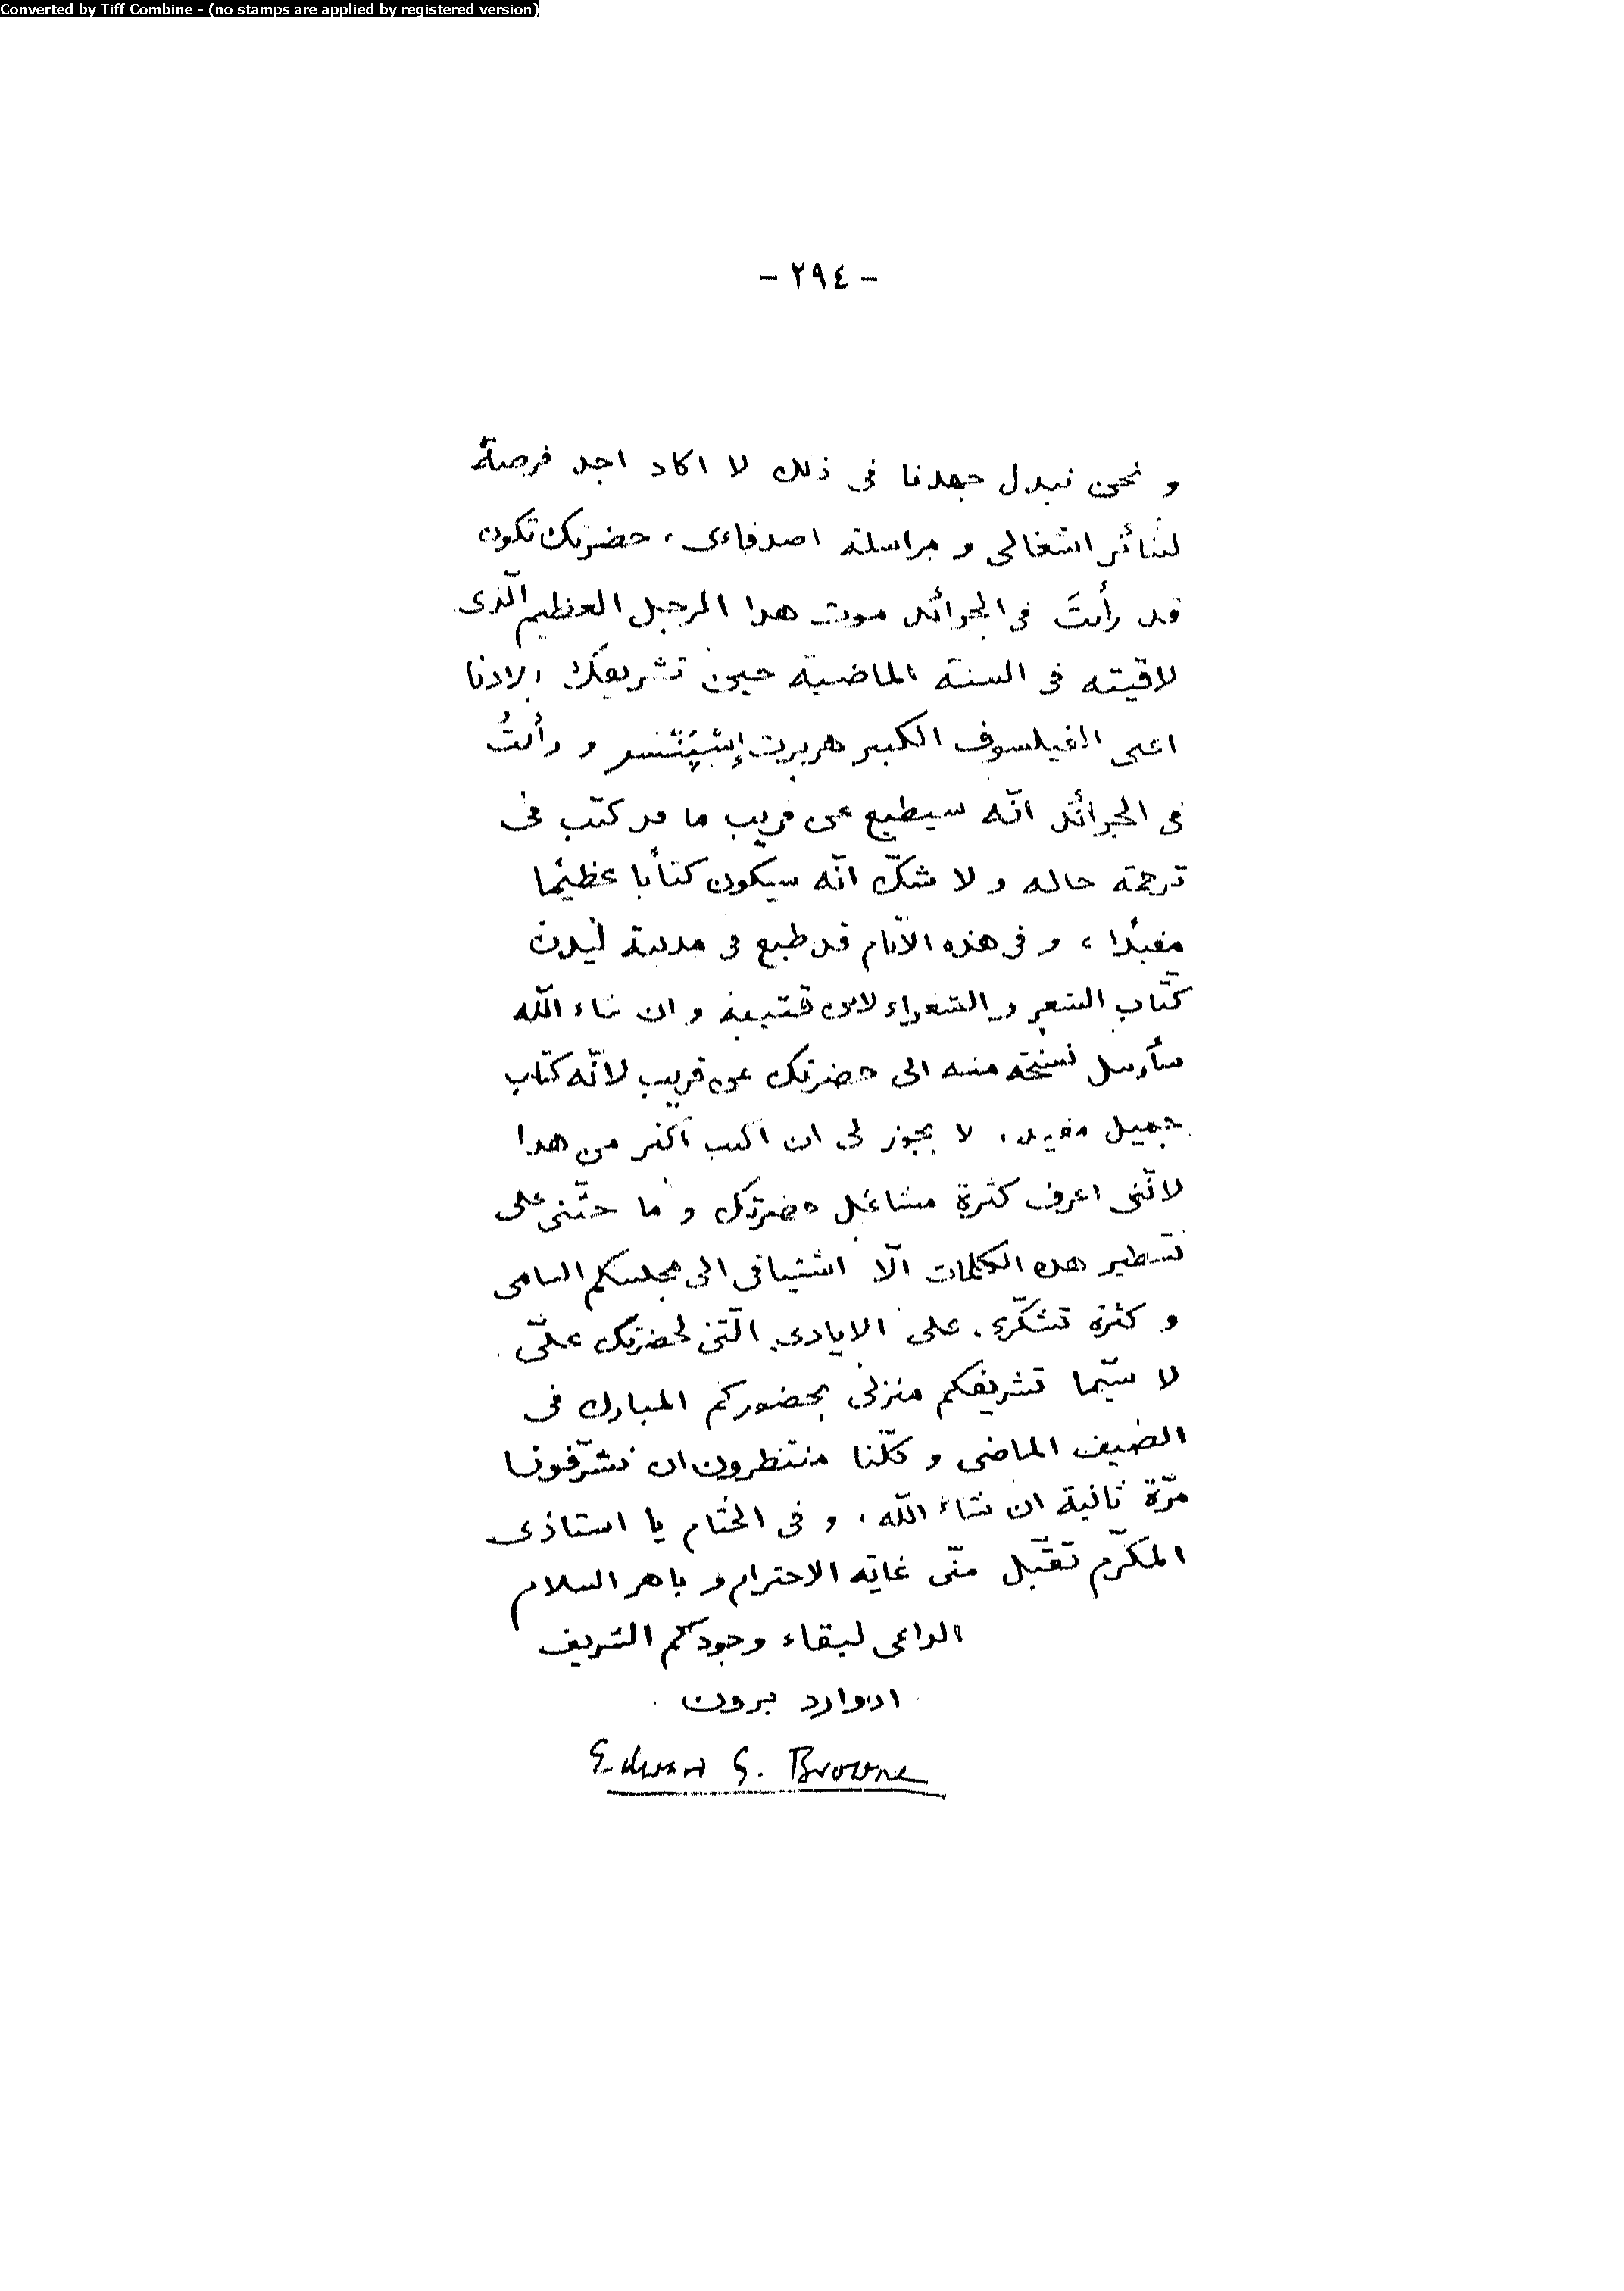 Converted by Tiff Combine - (no stamps are applied by registered version)
- ٢٩٤ -
و نحن نبذل جهدنا فى ذلك لا اكاد اجد فرصة
لسائر اشغالى و مراسلة اصدقاءى، حضرتك تكون
قد رأيتَ فى الجرائد موت هذا الرجل العظيم الّذى
لاقيته فى السنة الماضية حين تشريفك بلادنا
اعنى الفيلسوف الكبير هربرت إسْپِنْسر و رأيتُ
فى الجرائد انّه سيطبع عن قريب ما قد كتب فى
ترجمة حاله و لا شكّ انّه سيكون كتابًا عظيمًا
مفيدًا، و فى هذه الايّام قد طبع فى مدينة ليدن
كتاب الشعر و الشعراء لابن قتيبة و ان شاء اللّه
سأرسل نسخة منه الى حضرتك عن قريب لانّه كتاب
جميل مفيد، لا يجوز لى ان اكتب اكثر من هذا
لانّنى اعرف كثرة مشاغل حضرتك و ما حثّنى على
تسطير هذه الكلمات الّا اشتياقى الى مجلسكم السامى
و كثرة تشكّرى على الايادى الّتى لحضرتك علىّ
لا سيّما تشريفكم منزلى بحضوركم المبارك فى
الصيف الماضى و كلّنا منتظرون ان تشرّفونا
مرّة ثانية ان شاء اللّه، و فى الختام يا استاذى
المكرّم تقبّل منّى غاية الاحترام و باهر السلام
الداعى لبقاء وجودكم الشريف
ادوارد برون
Edward G. Browne